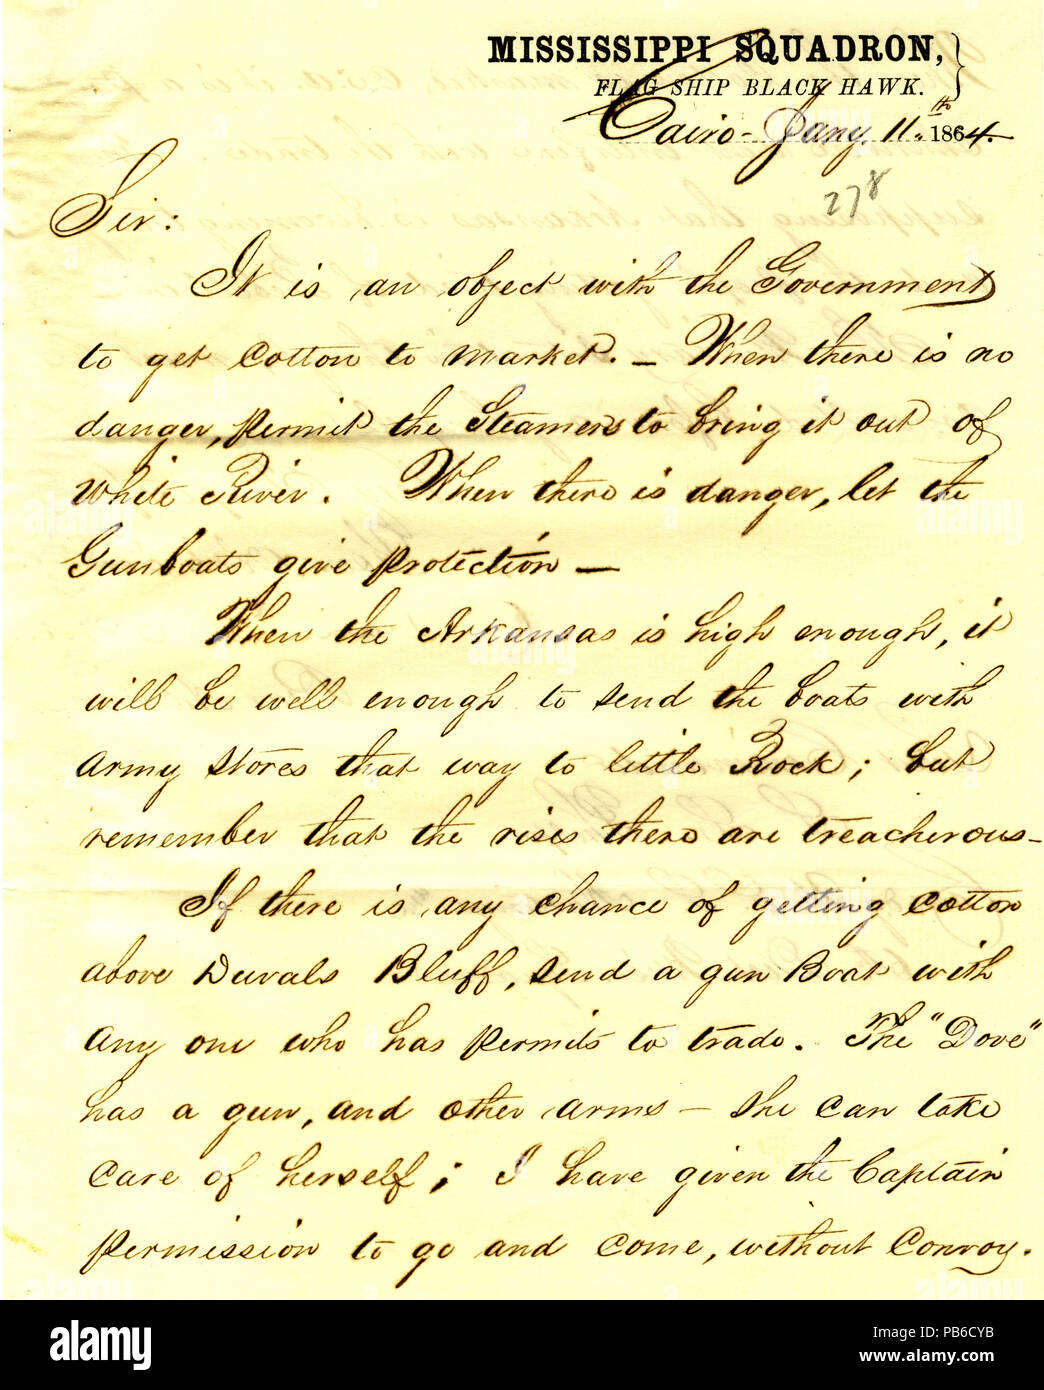 MISSISSIPPI SQUADRON,
FLAG SHIP BLACK HAWK.
Cairo - Jany. 11th 1864.
278
Sir:
It is an object with the Government
to get cotton to market. - When there is no
danger, permit the Steamers to bring it out of
White River. When there is danger, let the
Gunboats give protection -
When the Arkansas is high enough, it
will be well enough to send the boats with
army stores that way to Little Rock; but
remember that the rises there are treacherous -
If there is any chance of getting cotton
above Duvals Bluff, send a gun Boat with
any one who has permits to trade. The "Dove"
has a gun, and other arms - she can take
care of herself; I have given the Captain
permission to go and come, without Convoy.
alamy
Image ID: PB6CYB
www.alamy.com